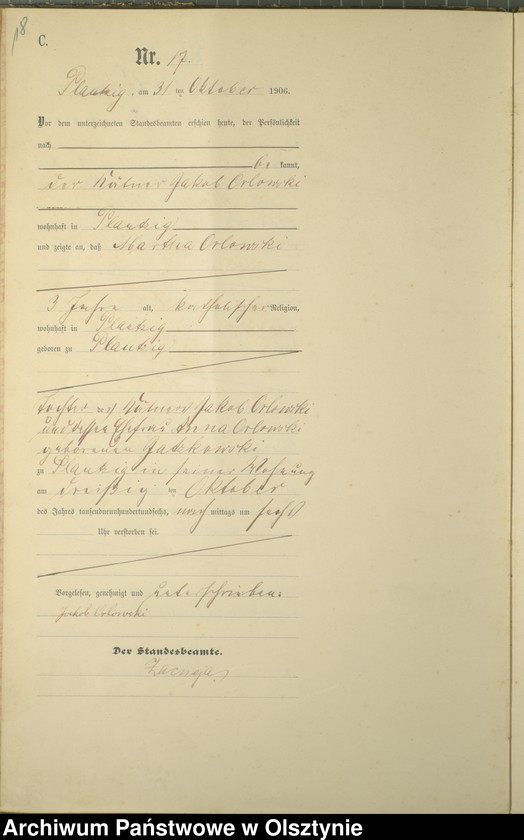 18
C.
Nr. 17.
Plautzig, am 31 ten Oktober 1906.
Vor dem unterzeichneten Standesbeamten erschien heute, der Persönlichkeit
nach
be kannt,
der Kätner Jakob Orlowski
wohnhaft in Plautzig
und zeigte an, daß Martha Orlowski
3 Jahre alt, katholischer Religion,
wohnhaft in Plautzig
geboren zu Plautzig
Tochter des Kätners Jakob Orlowski
und dessen Ehefrau Anna Orlowski
geborenen
zu Plautzig in seiner Wohnung
am dreißig ten Oktober
des Jahres tausendneunhundertundsechs, nach mittags um sechs
Uhr verstorben sei.
Vorgelesen, genehmigt und unterschrieben:
Jakob Orlowski
Der Standesbeamte.
Archiwum Państwowe w Olsztynie